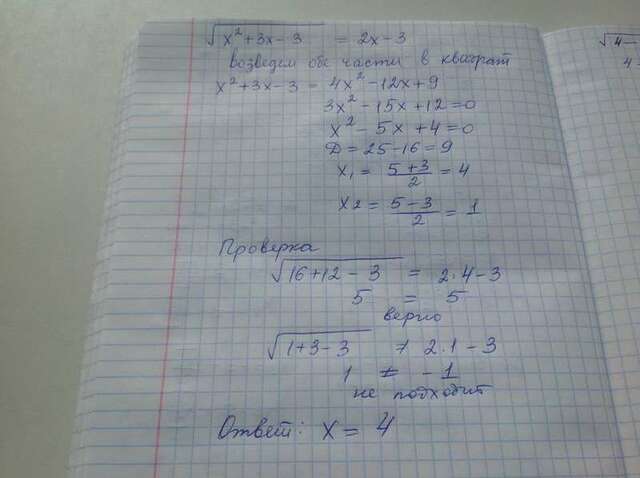 √(x²+3x-3) = 2x-3
возведем обе части в квадрат
x²+3x-3 = 4x²-12x+9
3x²-15x+12=0
x²-5x+4=0
Д=25-16=9
x₁ = (5+3)/2 = 4
x2 = (5-3)/2 = 1
Проверка
√(16+12-3) = 2·4-3
5 = 5
верно
√(1+3-3) ≠ 2·1-3
1 ≠ -1
не подходит
Ответ: x = 4
√4-
4-